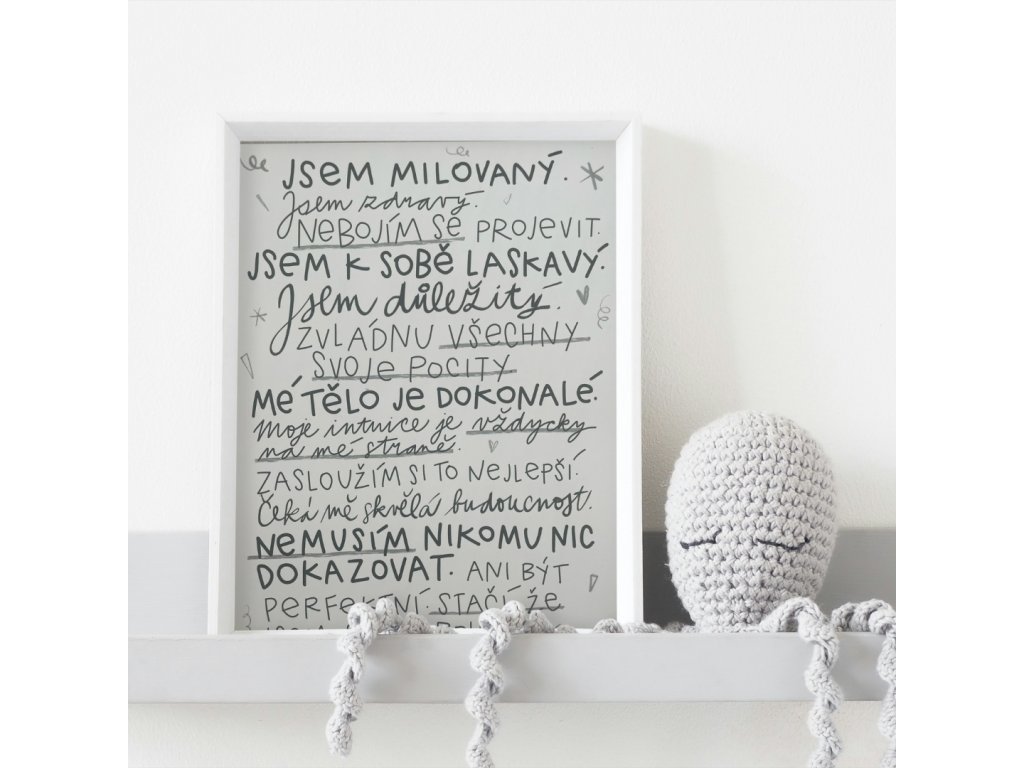 JSEM MILOVANÝ.
Jsem zdravý.
NEBOJÍM SE PROJEVIT.
JSEM K SOBĚ LASKAVÝ.
Jsem důležitý.
ZVLÁDNU VŠECHNY
SVOJE POCITY
MÉ TĚLO JE DOKONALÉ.
Moje intuice je vždycky
na mé straně.
ZASLOUŽÍM SI TO NEJLEPŠÍ.
Čeká mě skvělá budoucnost.
NEMUSÍM NIKOMU NIC
DOKAZOVAT. ANI BÝT
PERFEKTNÍ. STAČÍ, ŽE